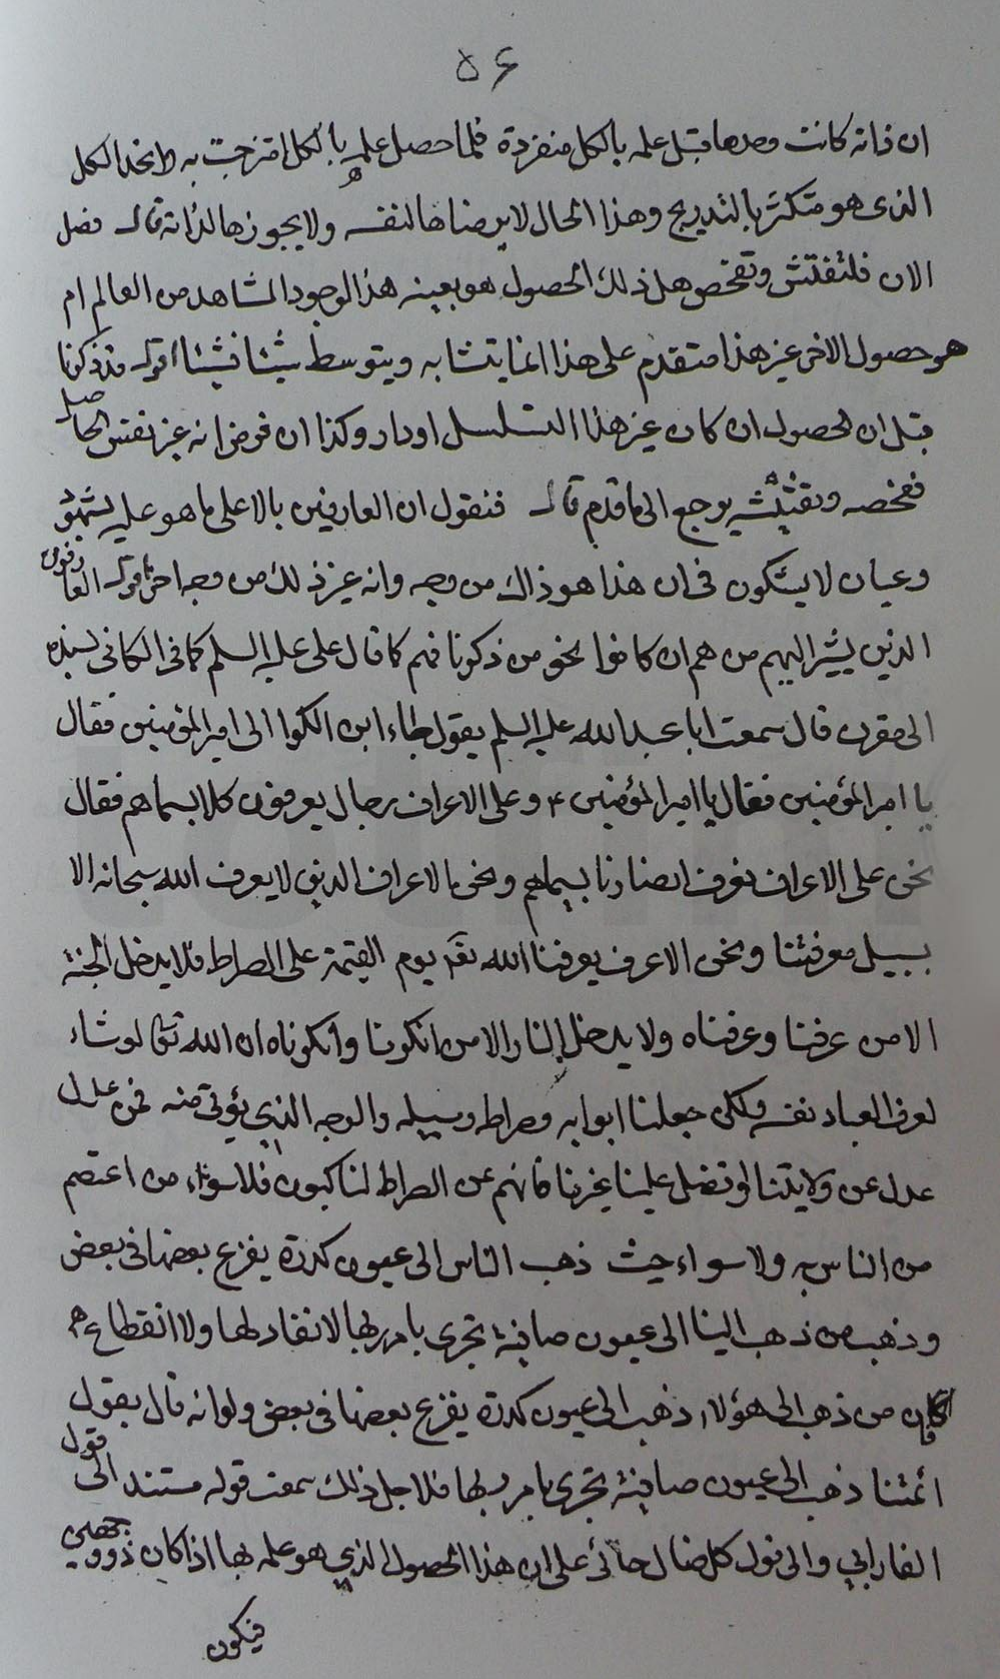 ٥٦
ان ذاته كانت وحدها قبل علمه بالكل منفردة فلما حصل علمه بالكل امتزجت به واتحد الكل
الذى هو متكثر بالتدريج وهذا الحال لا يرضاها لنفسه ولا يجوزها لذاته قال فصل
الان فلنفتش وتفحص هل ذلك الحصول هو بعينه هذا الوجود المشاهد من العالم ام
هو حصول الاخر غير هذا متقدم على هذا انما يتشابه ويتوسط شيئا فشيئا اقول قد ذكرنا
قبل ان الحصول ان كان غير هذا التسلسل او دار وكذا ان فرض انه غير نفس الحاصل
ففحصه وتفتيشه يرجع الى ما قدم قال فنقول ان العارفين بالاعلى ما هو عليه بشهود
وعيان لا يشكون فى ان هذا هو ذاك من وجه وانه غير ذلك من وجه اخر اقول العارفون
الذين يشير اليهم من هم ان كانوا نحو من ذكرنا فهم كما قال على عليه السلم كما فى الكافى بسنده
الى مقرن قال سمعت ابا عبد الله عليه السلم يقول جاء ابن الكوا الى امير المؤمنين فقال
يا امير المؤمنين فقال يا امير المؤمنين ء وعلى الاعراف رجال يعرفون كلا بسماهم فقال
نحن على الاعراف نعرف انصارنا بسيماهم ونحن الاعراف الذين لا يعرف الله سبحانه الا
بسبيل معرفتنا ونحن الاعرف يعرفنا الله تعا يوم القيمة على الصراط فلا يدخل الجنة
الا من عرفنا وعرفناه ولا يدخل النار الا من انكرنا وانكرناه ان الله تعالى لو شاء
لعرف العباد نفسه ولكن جعلنا ابوابه وصراطه وسبيله والوجه الذي يؤتى منه فمن عدل
عدل عن ولايتنا او فضل علينا غيرنا فانهم عن الصراط لناكبون فلا سواء من اعتصم
من الناس به ولا سواء حيث ذهب الناس الى عيون كدرة يفرغ بعضها فى بعض
وذهب من ذهب الينا الى عيون صافية تجرى بامر ربها لا نفاد لها ولا انقطاع هـ
فان من ذهب الى هؤلاء ذهب الى عيون كدرة يفرغ بعضها فى بعض ولو انه قال بقول
ائمتنا ذهب الى عيون صافية تجرى بامر ربها فلاجل ذلك سمعت قوله مستند الى قول
الفارابي والى قول كل ضال على ان هذا الحصول الذي هو علمه بها اذا كان ذو وجهين
فيكون